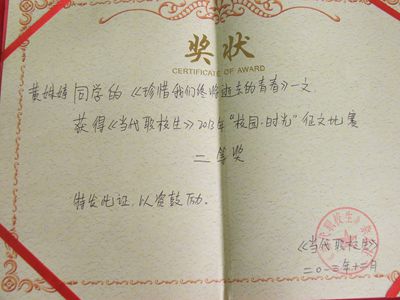 奖状
CERTIFICATE OF AWARD
黄姝婷同学的《珍惜我们终将逝去的青春》一文
获得《当代职校生》2013年“校园·时光”征文比赛
二等奖
特发此证，以资鼓励.
《当代职校生》
二〇一三年十二月